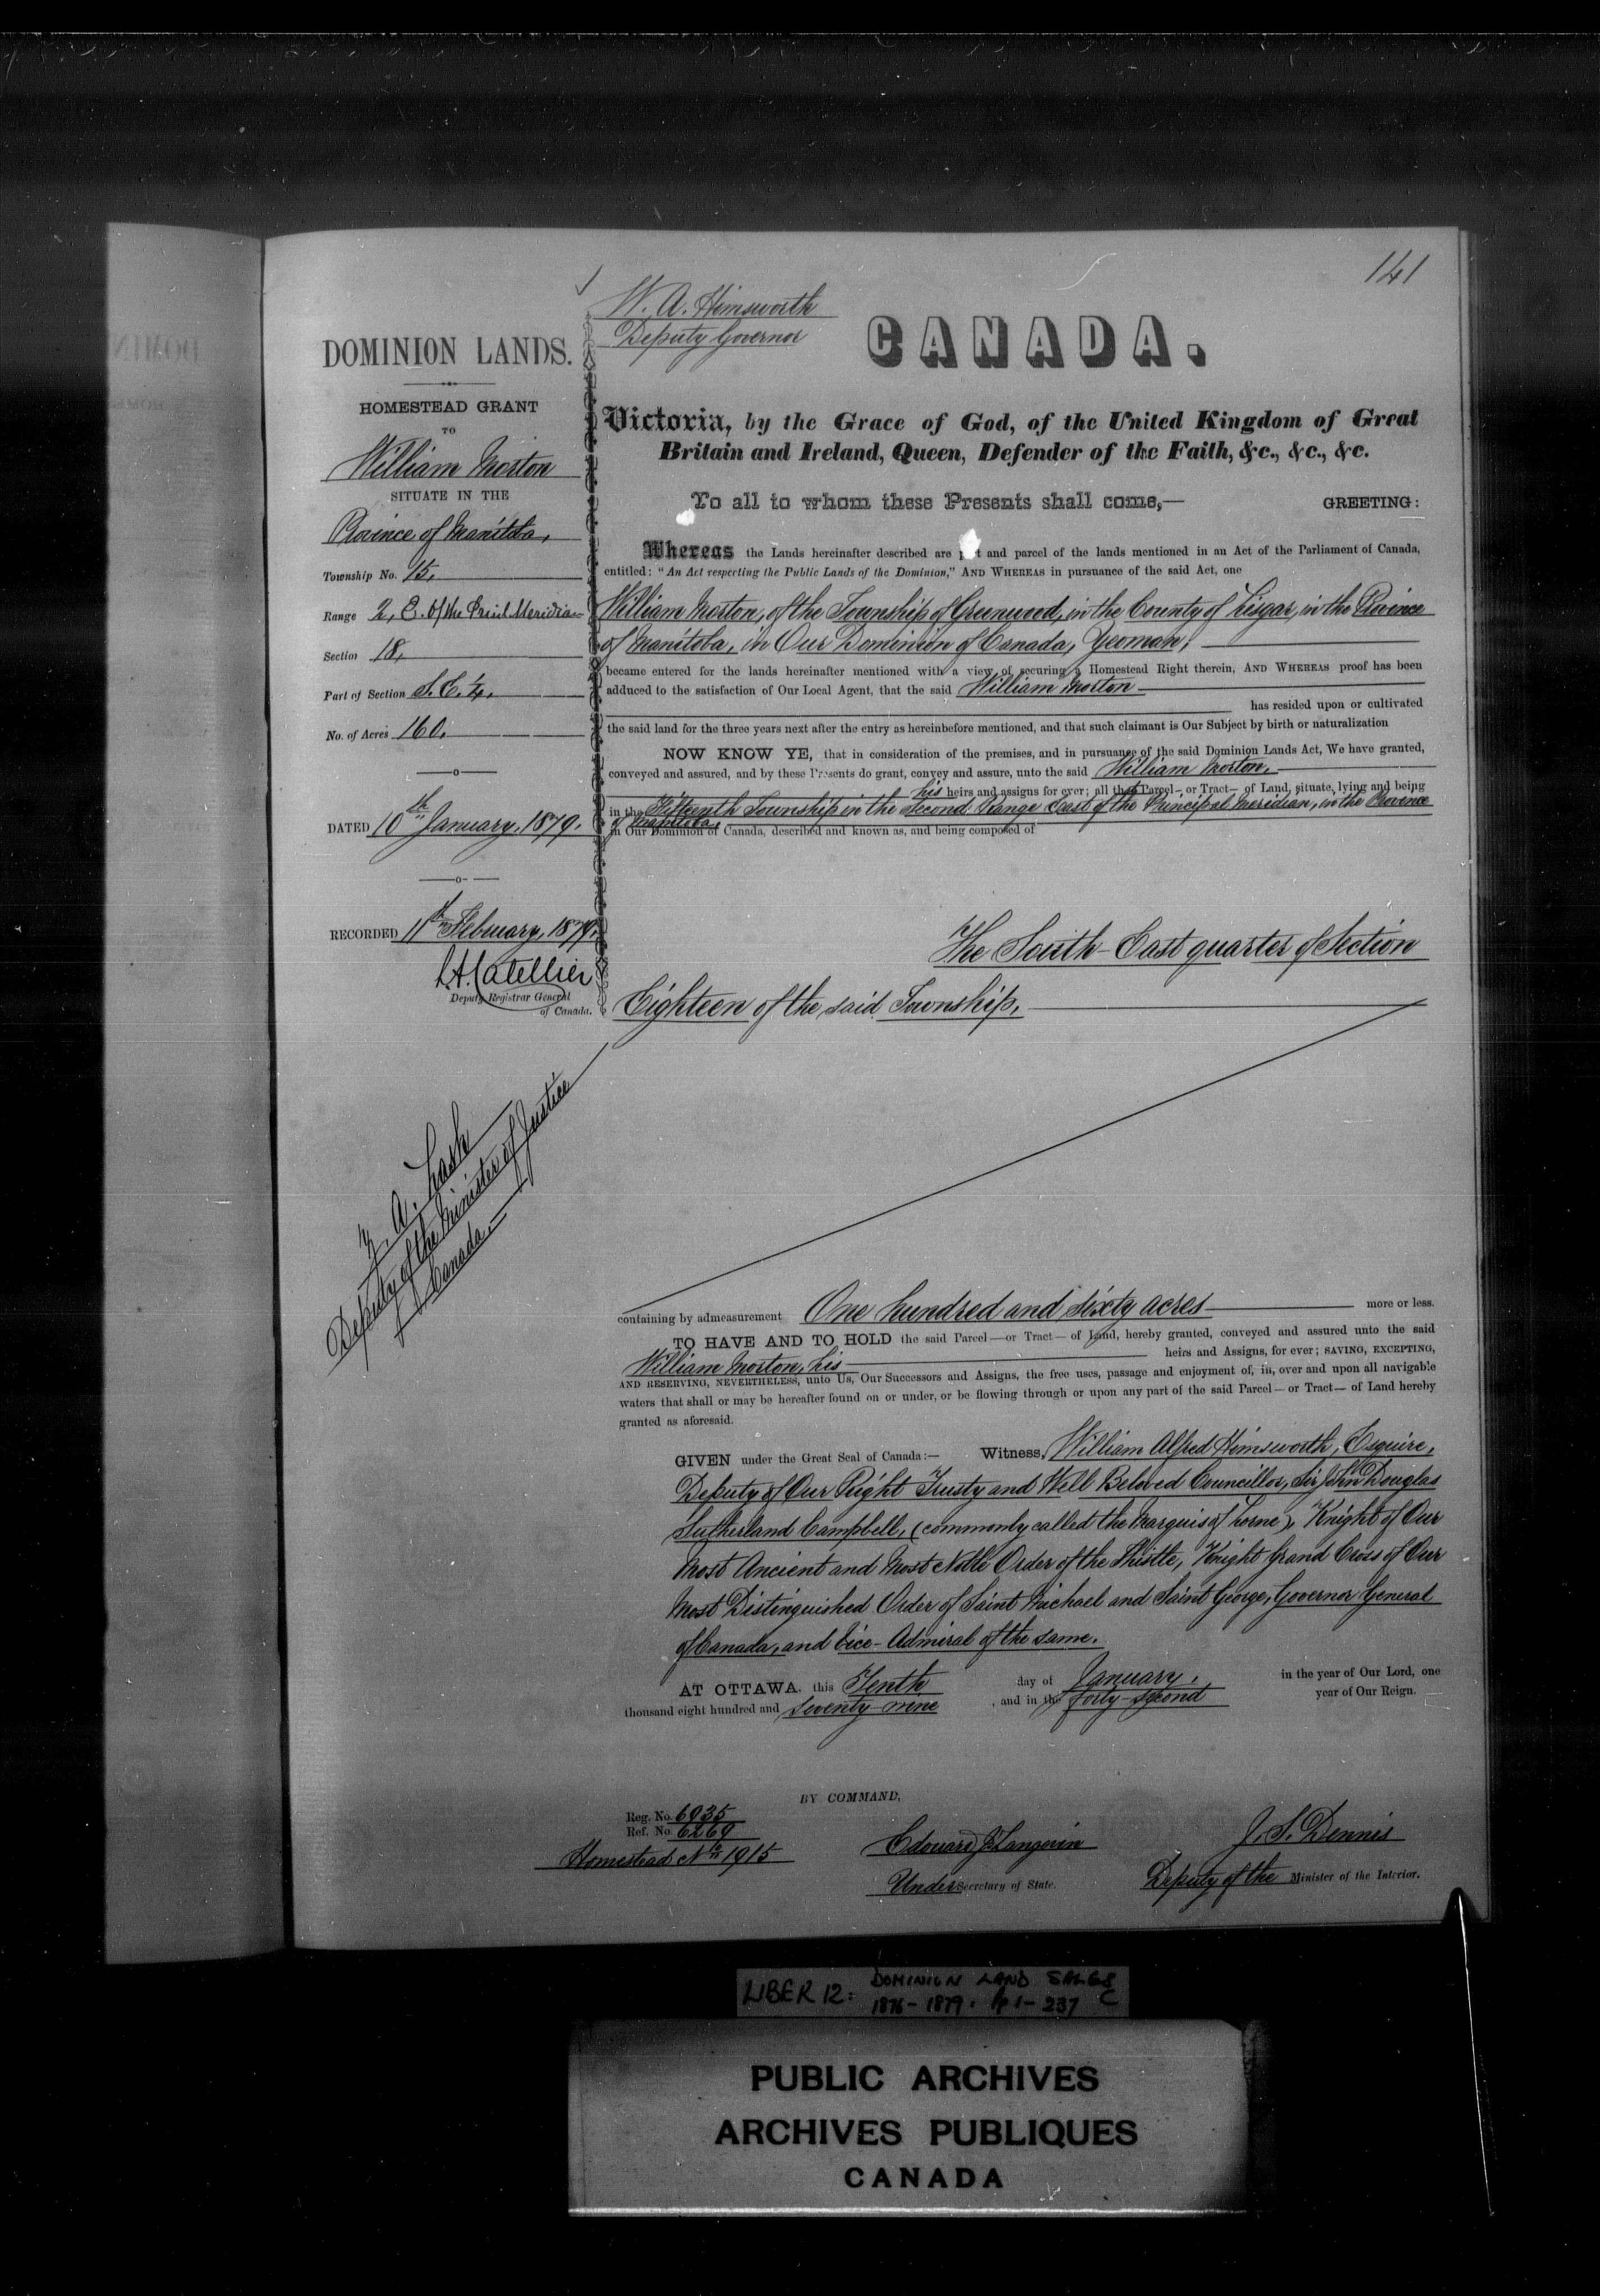 141
W. A. Himsworth
Deputy Governor
CANADA.
DOMINION LANDS.
HOMESTEAD GRANT
TO
William Morton
SITUATE IN THE
Province of Manitoba,
Township No. 15,
Range 2, E. of the Princl. Meridian
Section 18,
Part of Section S.E. 1/4,
No. of Acres 160,
DATED 10th January, 1879.
RECORDED 11th February, 1879.
L. A. Catellier
Deputy Registrar General
of Canada.
Z. A. Lash
Deputy of the Minister of Justice
Canada
Victoria, by the Grace of God, of the United Kingdom of Great
Britain and Ireland, Queen, Defender of the Faith, &c., &c., &c.
To all to whom these Presents shall come,— GREETING:
Whereas the Lands hereinafter described are p t and parcel of the lands mentioned in an Act of the Parliament of Canada,
entitled: "An Act respecting the Public Lands of the Dominion," AND WHEREAS in pursuance of the said Act, one
William Morton, of the Township of Greenwood, in the County of Lisgar, in the Province
of Manitoba, in Our Dominion of Canada, Yeoman,
became entered for the lands hereinafter mentioned with a view of securing a Homestead Right therein, AND WHEREAS proof has been
adduced to the satisfaction of Our Local Agent, that the said William Morton
has resided upon or cultivated
the said land for the three years next after the entry as hereinbefore mentioned, and that such claimant is Our Subject by birth or naturalization
NOW KNOW YE, that in consideration of the premises, and in pursuance of the said Dominion Lands Act, We have granted,
conveyed and assured, and by these Presents do grant, convey and assure, unto the said William Morton,
his heirs and assigns for ever; all that Parcel — or Tract — of Land, situate, lying and being
in the Fifteenth Township in the Second Range East of the Principal Meridian, in the Province
of Manitoba,
in Our Dominion of Canada, described and known as, and being composed of
The South-East quarter of Section
Eighteen of the said Township.
containing by admeasurement One hundred and sixty acres more or less.
TO HAVE AND TO HOLD the said Parcel — or Tract — of Land, hereby granted, conveyed and assured unto the said
William Morton, his heirs and Assigns, for ever; SAVING, EXCEPTING,
AND RESERVING, NEVERTHELESS, unto Us, Our Successors and Assigns, the free uses, passage and enjoyment of, in, over and upon all navigable
waters that shall or may be hereafter found on or under, or be flowing through or upon any part of the said Parcel — or Tract — of Land hereby
granted as aforesaid.
GIVEN under the Great Seal of Canada:— Witness, William Alfred Himsworth, Esquire,
Deputy of Our Right Trusty and Well Beloved Councillor, Sir John Douglas
Sutherland Campbell, (commonly called the Marquis of Lorne), Knight of Our
Most Ancient and Most Noble Order of the Thistle, Knight Grand Cross of Our
Most Distinguished Order of Saint Michael and Saint George, Governor General
of Canada, and Vice-Admiral of the same.
AT OTTAWA, this Tenth day of January, in the year of Our Lord, one
thousand eight hundred and seventy-nine, and in the forty-second year of Our Reign.
BY COMMAND,
Reg. No. 6935
Ref. No. 6269
Homestead No. 1915
Edouard J. Langevin
Under Secretary of State.
J. S. Dennis
Deputy of the Minister of the Interior.
LIBER 12: DOMINION LAND SALES
1876-1879. pp 1-237 C
PUBLIC ARCHIVES
ARCHIVES PUBLIQUES
CANADA